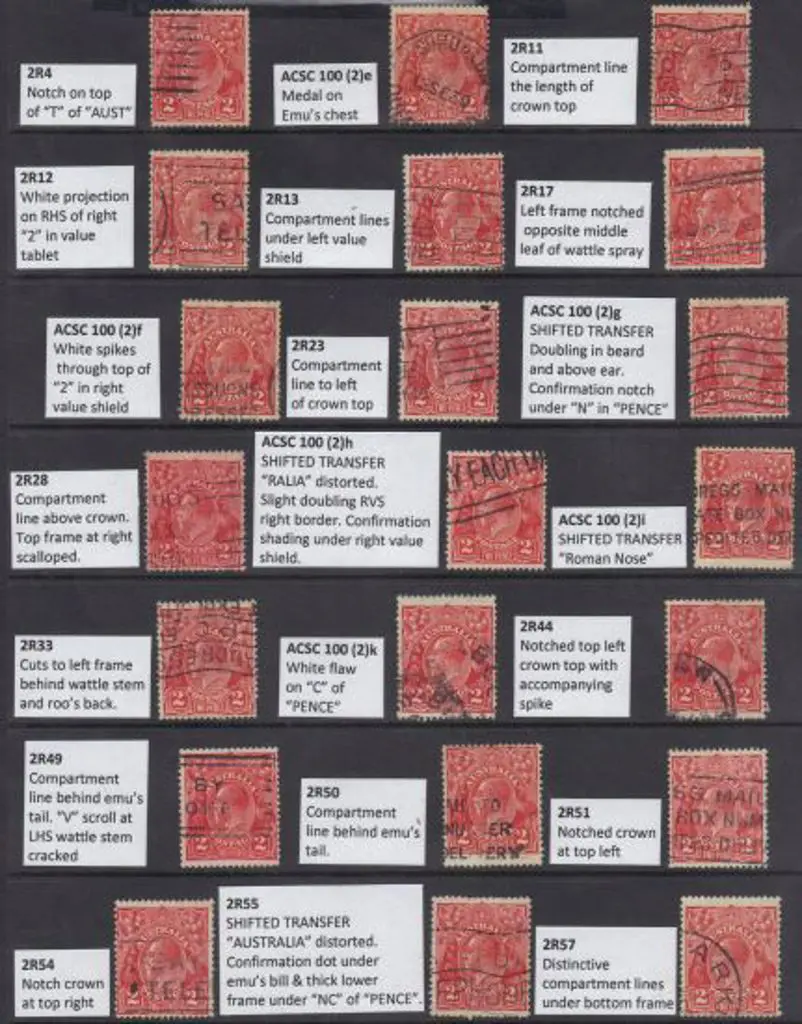 2R4
Notch on top
of "T" of "AUST"
ACSC 100 (2)e
Medal on
Emu's chest
2R11
Compartment line
the length of
crown top
2R12
White projection
on RHS of right
"2" in value
tablet
2R13
Compartment lines
under left value
shield
2R17
Left frame notched
opposite middle
leaf of wattle spray
ACSC 100 (2)f
White spikes
through top of
"2" in right
value shield
2R23
Compartment
line to left
of crown top
ACSC 100 (2)g
SHIFTED TRANSFER
Doubling in beard
and above ear.
Confirmation notch
under "N" in "PENCE"
2R28
Compartment
line above crown.
Top frame at right
scalloped.
ACSC 100 (2)h
SHIFTED TRANSFER
"RALIA" distorted.
Slight doubling RVS
right border. Confirmation
shading under right value
shield.
ACSC 100 (2)i
SHIFTED TRANSFER
"Roman Nose"
2R33
Cuts to left frame
behind wattle stem
and roo's back.
ACSC 100 (2)k
White flaw
on "C" of
"PENCE"
2R44
Notched top left
crown top with
accompanying
spike
2R49
Compartment
line behind emu's
tail. "V" scroll at
LHS wattle stem
cracked
2R50
Compartment
line behind emu's
tail.
2R51
Notched crown
at top left
2R54
Notch crown
at top right
2R55
SHIFTED TRANSFER
"AUSTRALIA" distorted.
Confirmation dot under
emu's bill & thick lower
frame under "NC" of "PENCE".
2R57
Distinctive
compartment lines
under bottom frame